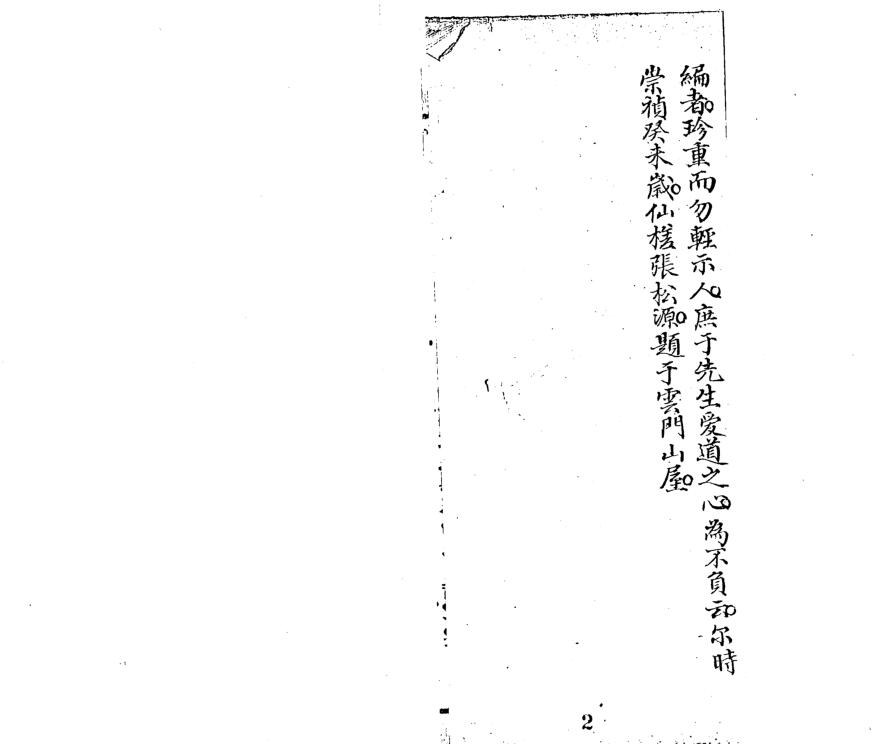 編者。珍重而勿輕示人。庶于先生愛道之心。為不負云。尔時
崇禎癸未歲。仙槎張松源。題于雲門山屋。
2